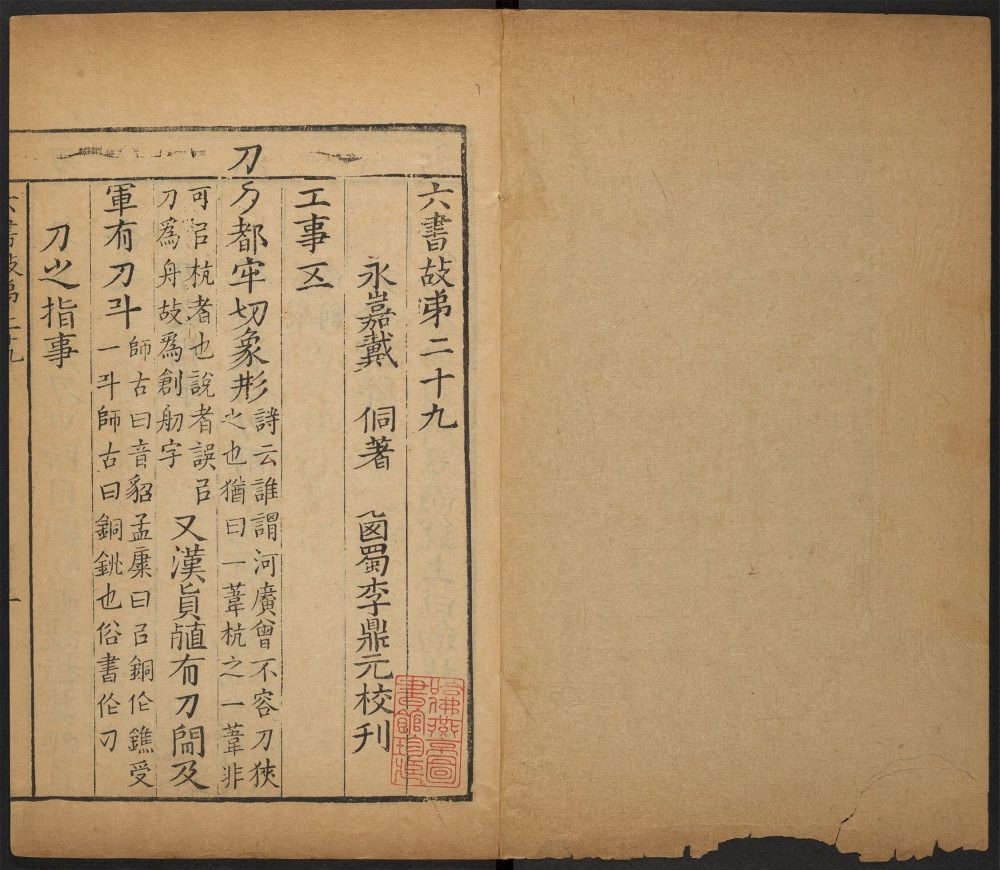 六書故弟二十九
永嘉戴 侗著 㢴蜀李鼎元校刊
工事五
刀
刀都牢切象形
詩云誰謂河廣曾不容刀狹
之也猶曰一葦杭之一葦非
可㠯杭者也說者誤㠯
刀爲舟故爲創舠字
又漢貟䐈有刀閒及
軍有刀斗
師古曰音貂孟康曰㠯銅作鐎受
一斗師古曰銅銚也俗書作刁
刀㞢指事
六書故弟二十九
一
哈佛燕京圖書館珍藏